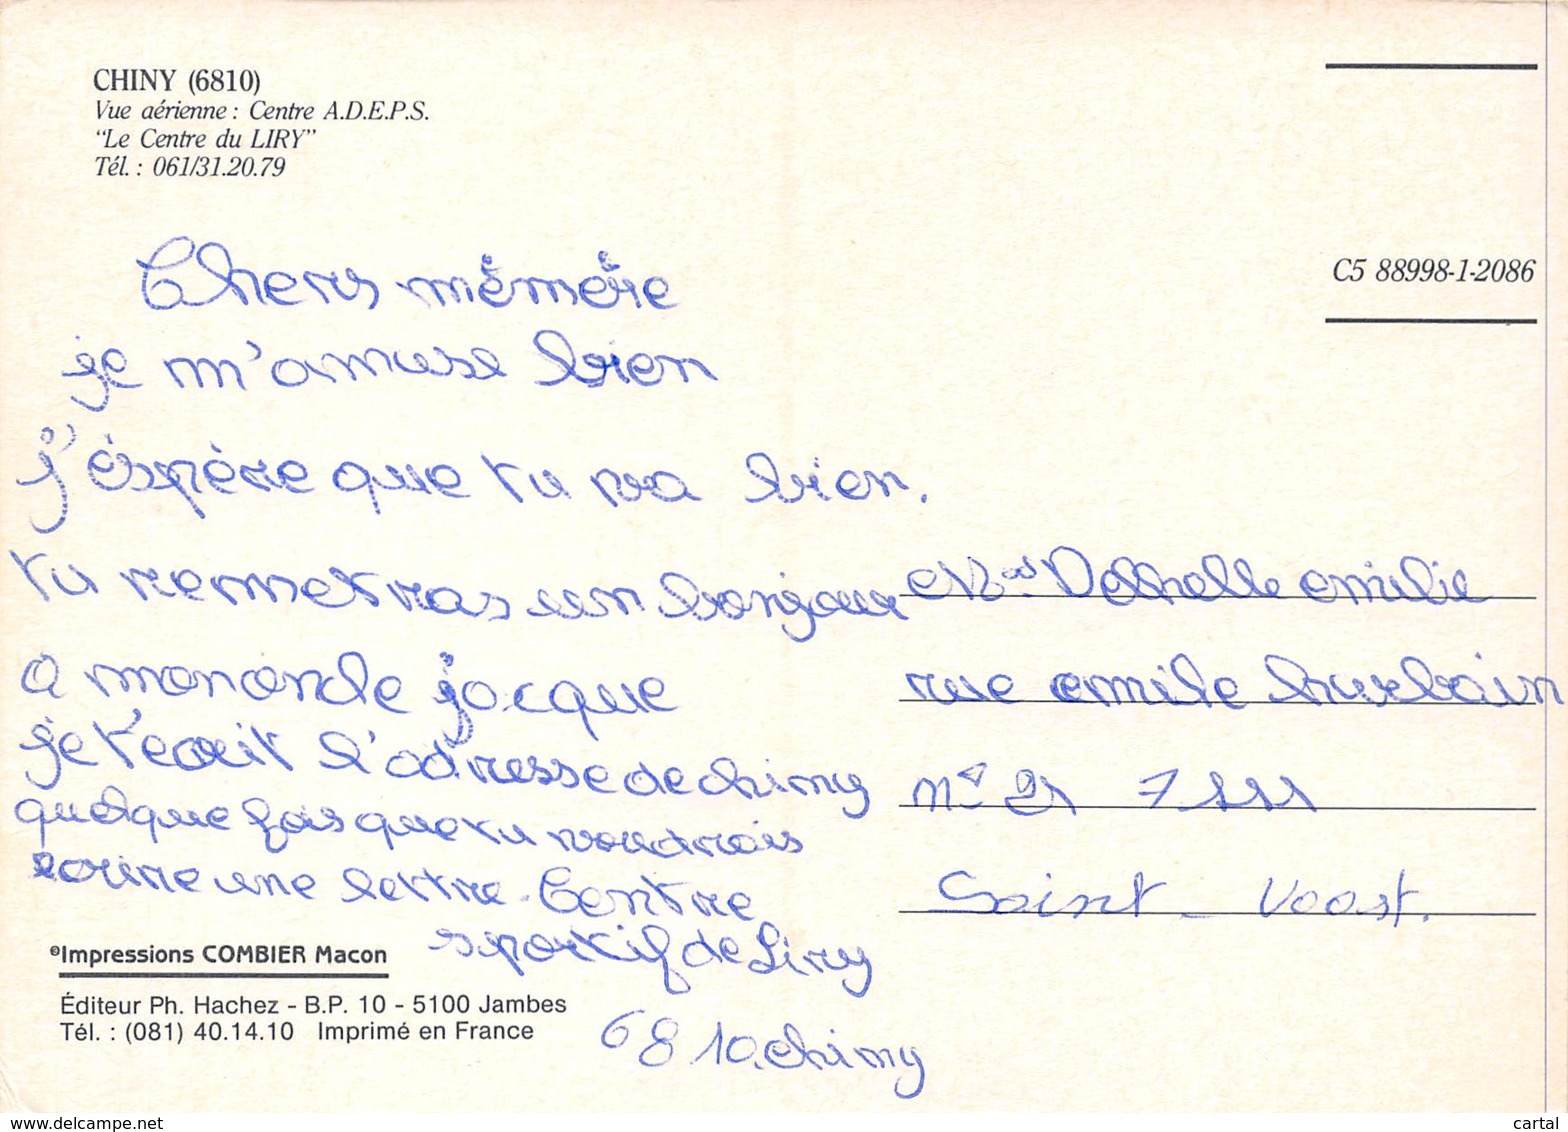 CHINY (6810)
Vue aérienne : Centre A.D.E.P.S.
"Le Centre du LIRY"
Tél. : 061/31.20.79
C5 88998-1-2086
Chers mémére
je m'amuse bien
j'éspère que tu va bien.
tu remetras un bonjour
a mononcle jacque
je t'ecrit l'adresse de chiny
quelque fois que tu voudrais
ecrire une lettre. Centre
sportif de Liry
6810. chiny
rue emile hurbain
n° 21
Saint - Vaast.
©Impressions COMBIER Macon
Éditeur Ph. Hachez - B.P. 10 - 5100 Jambes
Tél. : (081) 40.14.10 Imprimé en France
www.delcampe.net
cartal